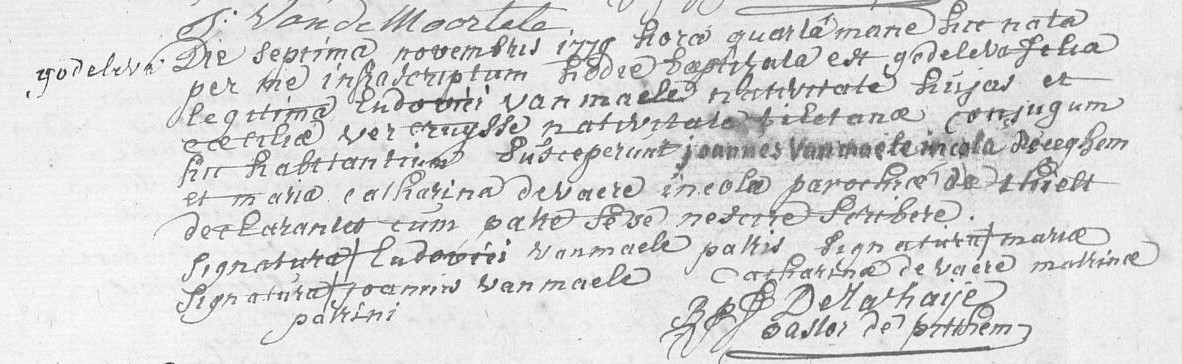 J: Van de Moortele
godeleva Die septima novembris 1778 hora quarta mane hic nata
per me infrascriptum hodie baptizata est godeleva filia
legitima Ludovici van maele nativitate hujas et
cæciliæ ver cruysse nativitate tiletanæ conjugum
hic habitantium Susceperunt joannes vanmaele incola deeeghem
et maria catharina de vaere incola parochiæ de thielt
declarantes cum patre sese nescire scribere.
Signatura + Ludovici vanmaele patris Signatura + mariæ
Catharinæ de vaere matrinæ
Signatura + joannis vanmaele
patrini
De la haije
pastor de pitthem